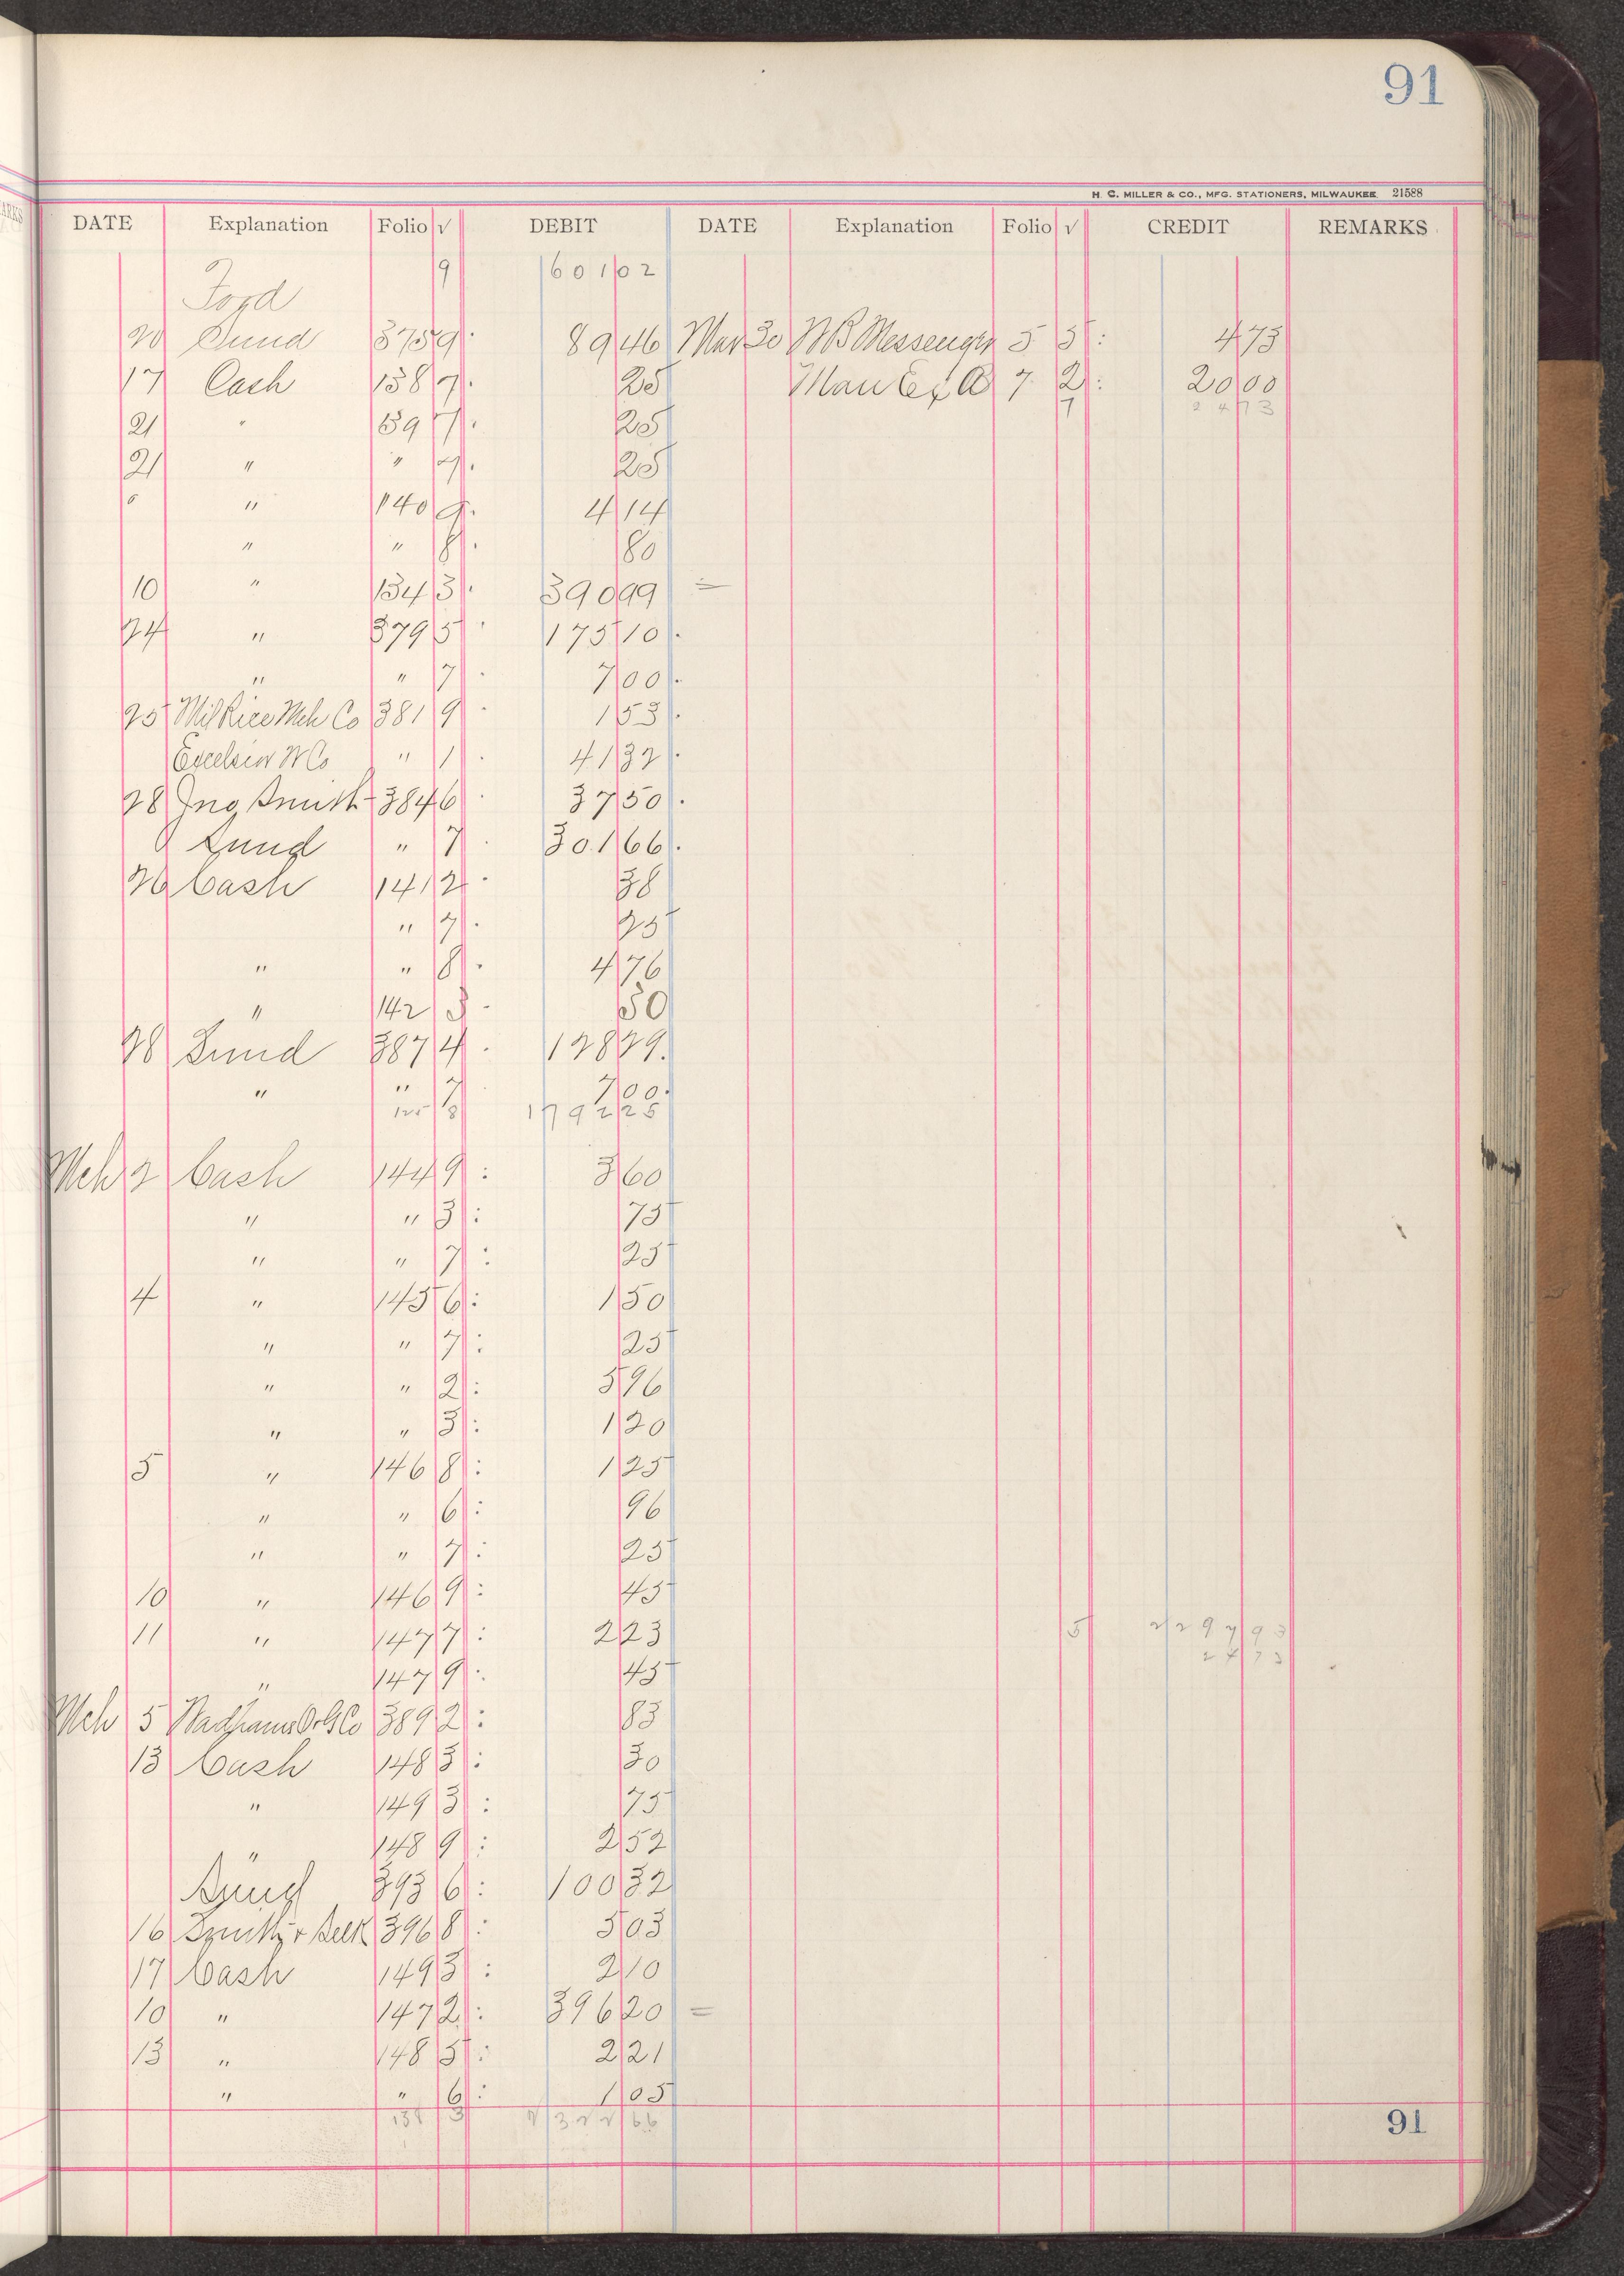 91
H. C. MILLER & CO., MFG. STATIONERS, MILWAUKEE 21588
DATE Explanation Folio √ DEBIT DATE Explanation Folio √ CREDIT REMARKS
9 160102
Ford
20 Sund 375 9 8946 Mar 30 WB Messenger 5 5 473
17 Cash 138 7 25 Man Ex A 7 2 2000
7 2473
21 " 139 7 25
21 " " 7 25
" " 140 9 414
" " 8 80
10 " 134 3 39099 =
24 " 379 5 17510
" " 7 700
25 Mil Rice Mch Co 381 9 153
Excelsior W Co " 1 4132
28 Jno Smith 384 6 3750
Sund " 7 30166
26 Cash 141 2 38
" 7 25
" " 8 476
" 142 3 50
28 Sund 387 4 12829
" " 7 700
125 8 179225
Mch 2 Cash 144 9 360
" " 3 75
" " 7 25
4 " 145 6 150
" " 7 25
" " 2 596
" " 3 120
5 " 146 8 125
" " 6 96
" " 7 25
10 " 146 9 45
11 " 147 7 223 5 229793
" 147 9 45 2473
Mch 5 Wadhams O&G Co 389 2 83
13 Cash 148 3 30
" 149 3 75
" 148 9 252
Sund 393 6 10032
16 Smith & Belk 396 8 503
17 Cash 149 3 210
10 " 147 2 39620 =
13 " 148 5 221
" " 6 105
138 3 232266
91